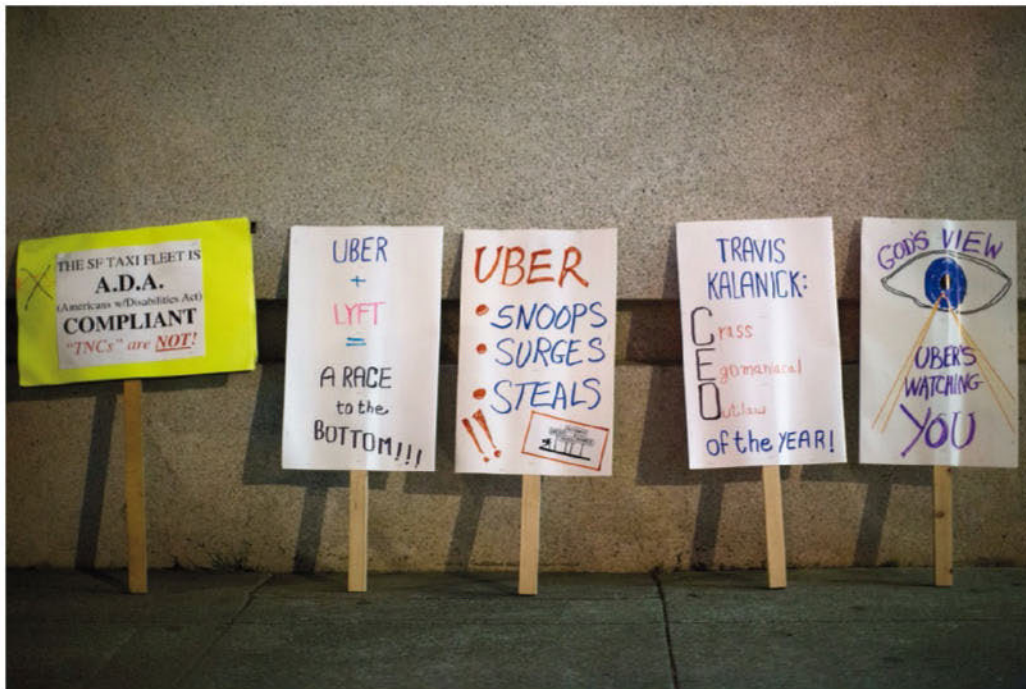 THE SF TAXI FLEET IS
A.D.A.
(Americans w/Disabilities Act)
COMPLIANT
"TNCs" are NOT!
UBER
+
LYFT
=
A RACE
to the
BOTTOM!!!
UBER
• SNOOPS
• SURGES
• STEALS
!!
TRAVIS
KALANICK:
Crass
Egomaniacal
Outlaw
of the YEAR!
GOD'S VIEW
UBER'S
WATCHING
YOU